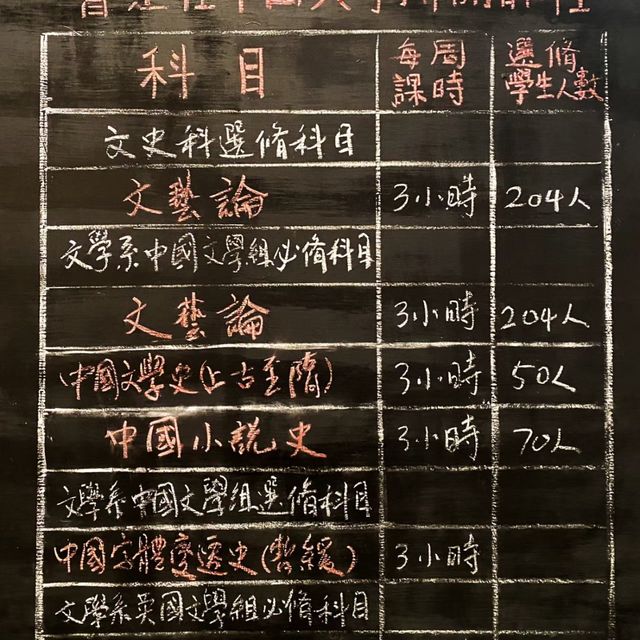 科目 每周課時 選修學生人數
文史科選修科目
文藝論 3小時 204人
文學系中國文學組必修科目
文藝論 3小時 204人
中國文學史(上古至隋) 3小時 50人
中國小說史 3小時 70人
文學系中國文學組選修科目
中國字體變遷史(暫緩) 3小時
文學系英國文學組必修科目